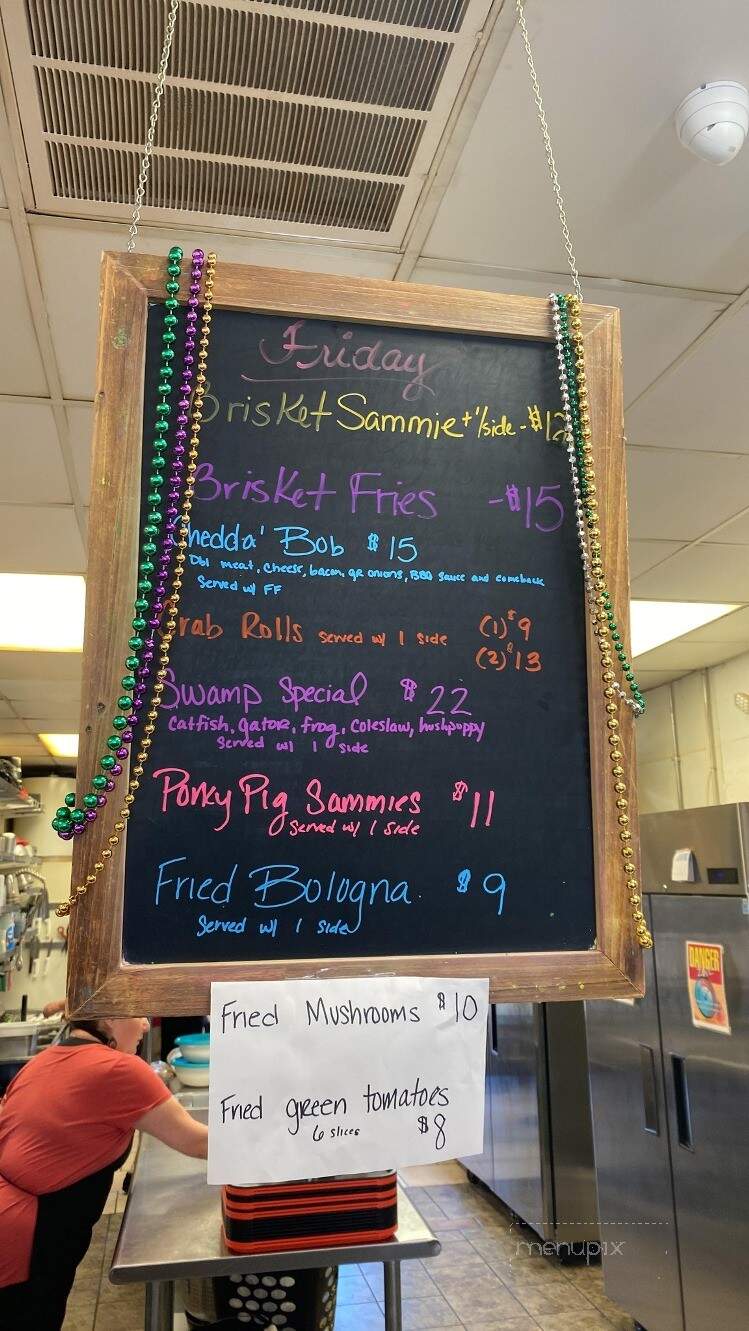 Friday
Brisket Sammie + 1/side - $12
Brisket Fries - $15
Chedda' Bob $15
Dbl meat, cheese, bacon, gr onions, BBQ sauce and comeback
Served w/ FF
Crab Rolls served w/ 1 side (1) $9
(2) $13
Swamp Special $22
catfish, gator, frog, coleslaw, hushpuppy
Served w/ 1 side
Porky Pig Sammies $11
Served w/ 1 side
Fried Bologna $9
Served w/ 1 side
Fried Mushrooms $10
Fried green tomatoes
6 slices $8
DANGER
menupix